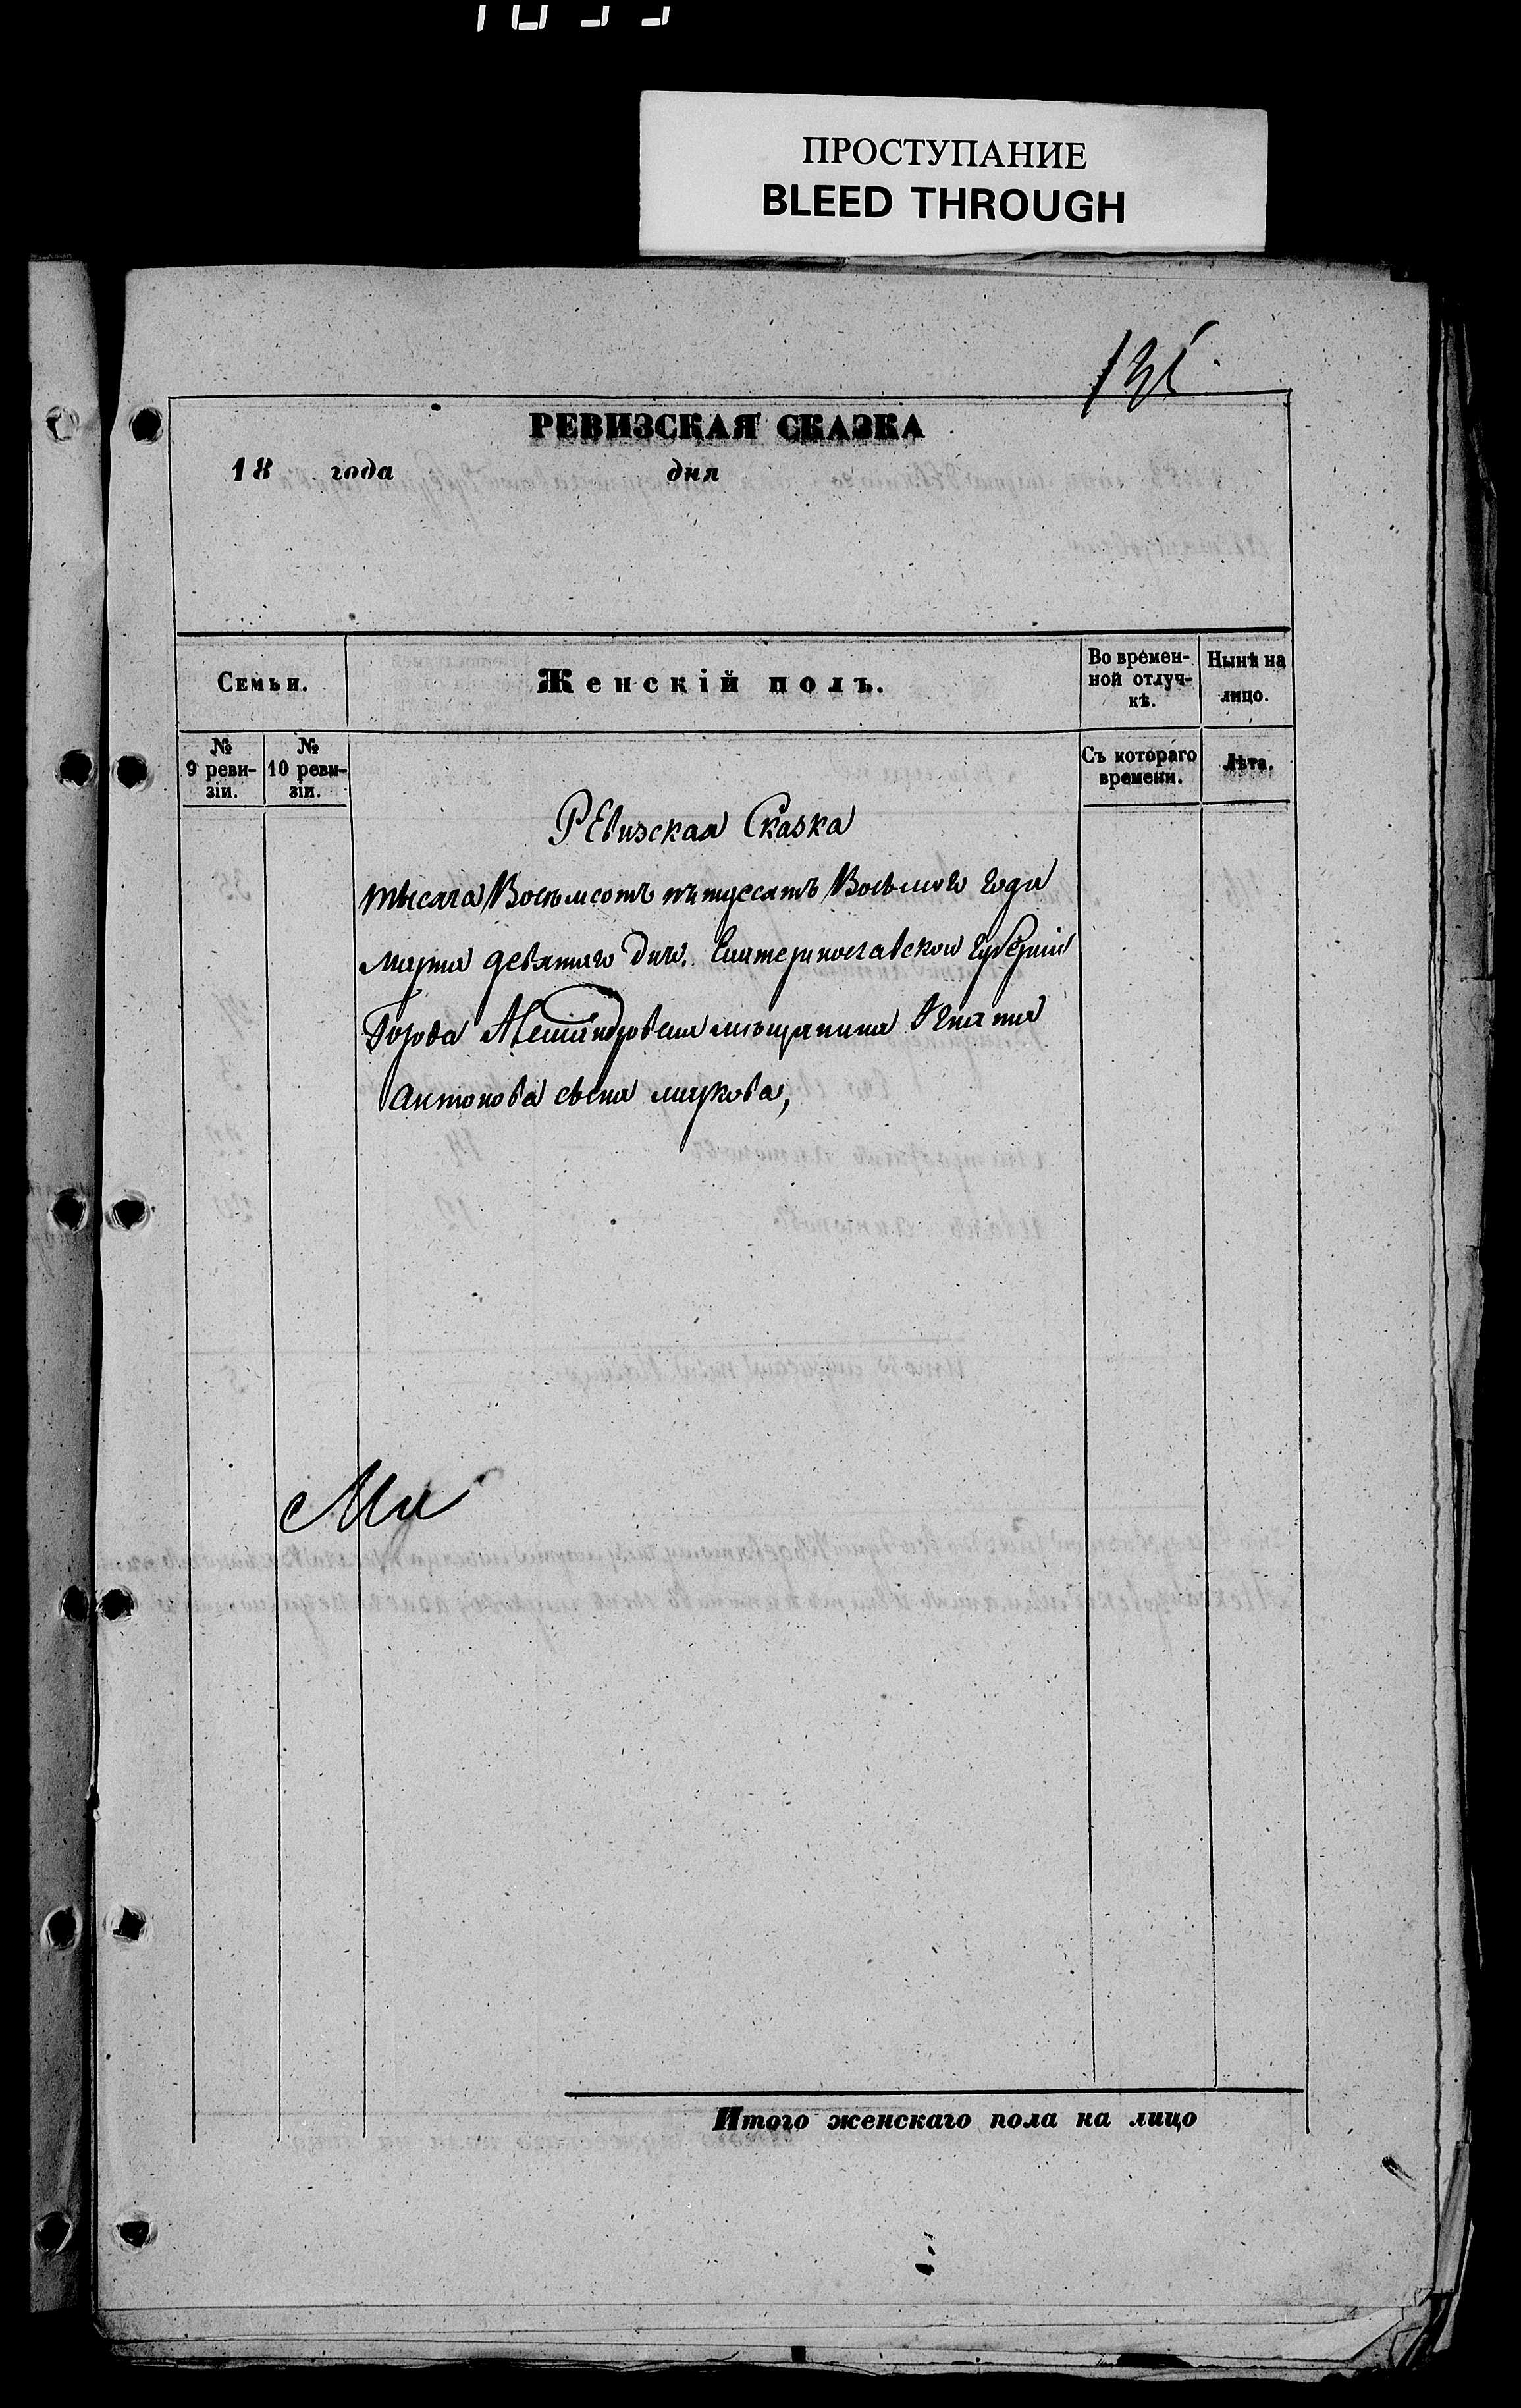 ПРОСТУПАНИЕ
BLEED THROUGH
РЕВИЗСКАЯ СКАЗКА
18 года дня
Семьи.
Женскій полъ.
Во времен-
ной отлуч-
кѣ.
Нынѣ на
лицо.
№
9 реви-
зіи.
№
10 реви-
зіи.
Съ котораго
времени.
Лѣта.
Ревизская Сказка
тысяча Восемсотъ пятдесятъ Восьмого года
марта девятаго дня. Екатеринославской губерніи
Города Александровска мещанина Игната
Антонова сына
Итого женскаго пола на лицо